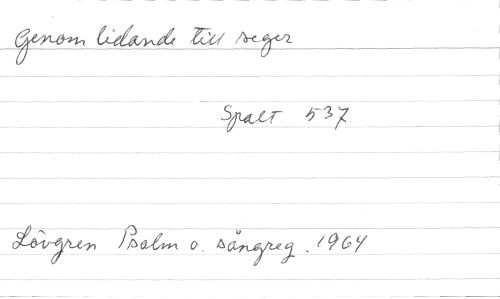 Genom lidande till seger
Spalt 537
Lövgren Psalm o. sångreg. 1964